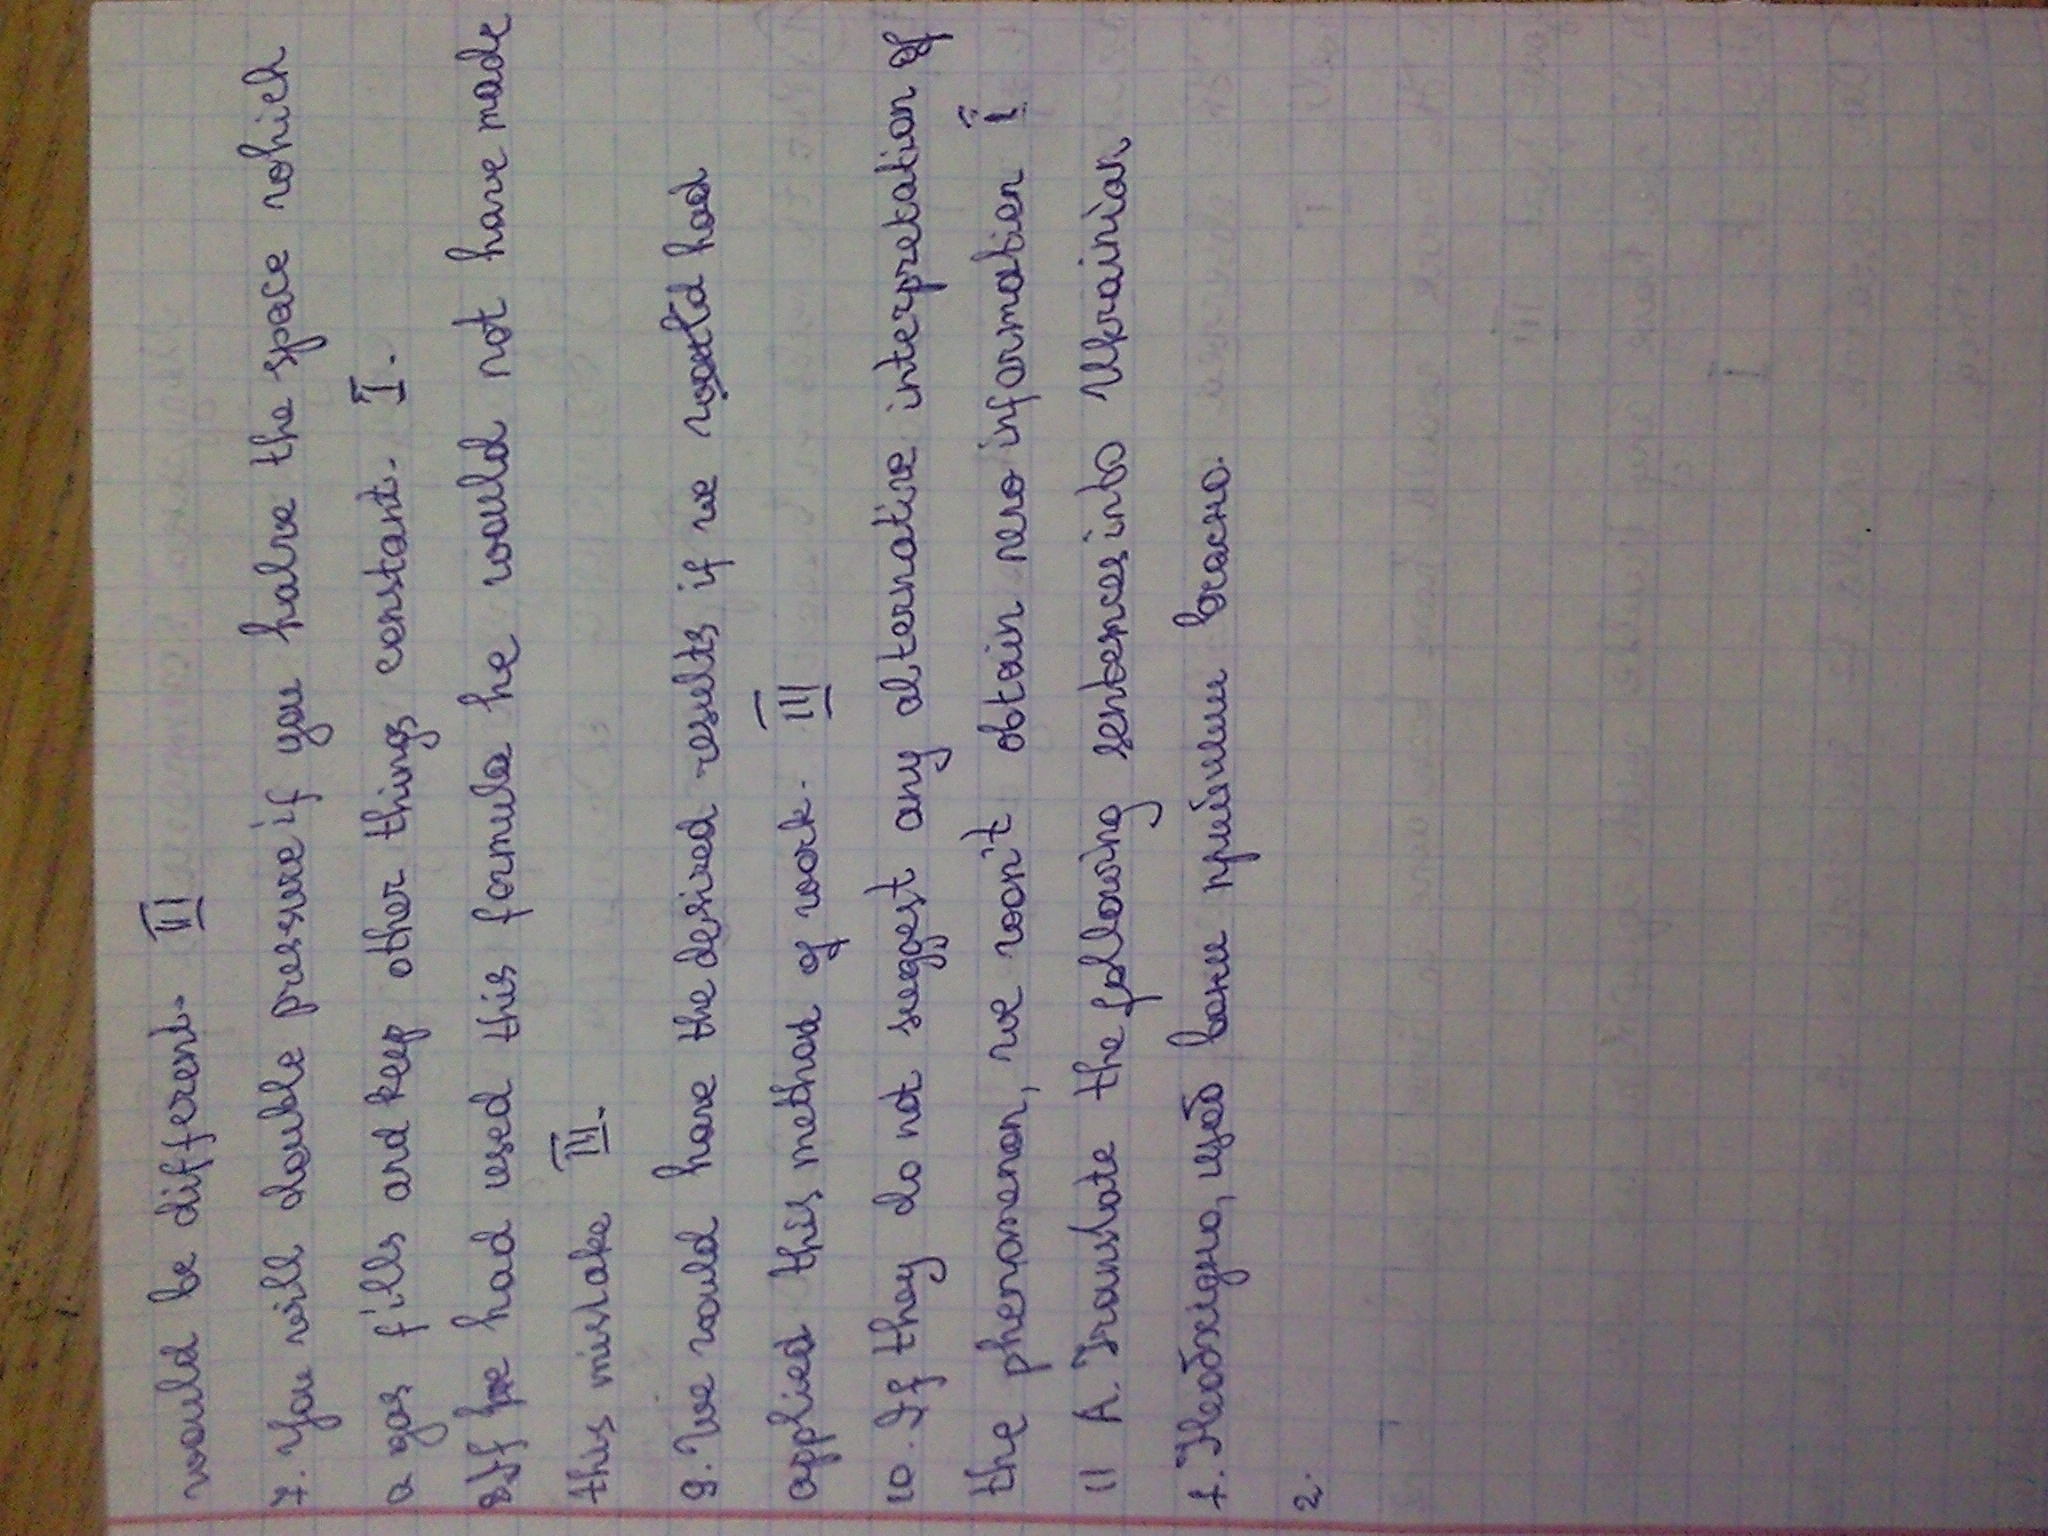 would be different. III
7. You will double pressure if you halve the space which
a gas fills and keep other things constant. I.
8 If he had used this formula he would not have made
this mistake III.
9. We would have the desired results if we had
applied this method of work. III
10. If they do not suggest any alternative interpretation of
the phenomenon, we won't obtain new information I
11 A. Translate the following sentences into Ukrainian
1. Необхідно, щоб вони прийшли вчасно.
2.